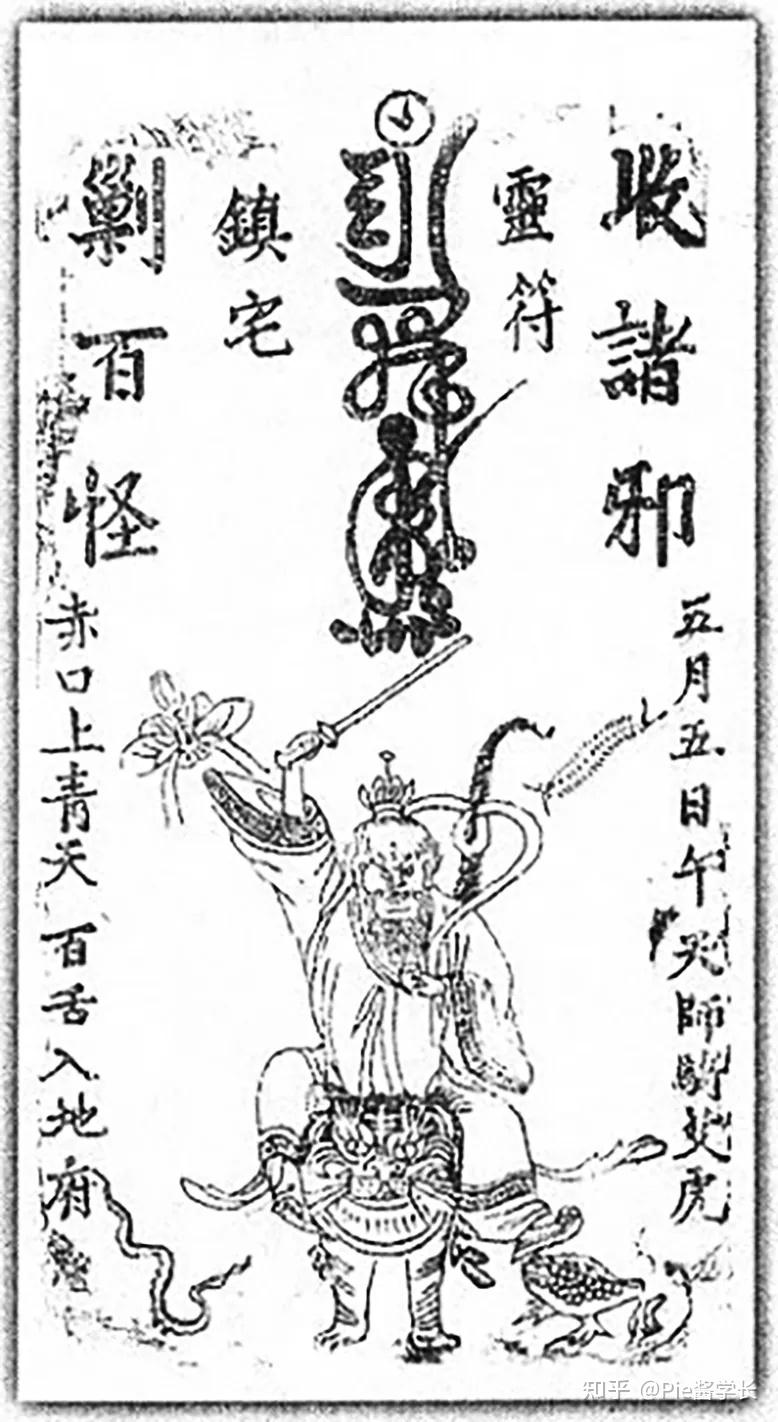 收諸邪
靈符
鎮宅
剿百怪
五月五日午天師騎艾虎
赤口上青天百舌入地府
知乎 @Pie酱学长